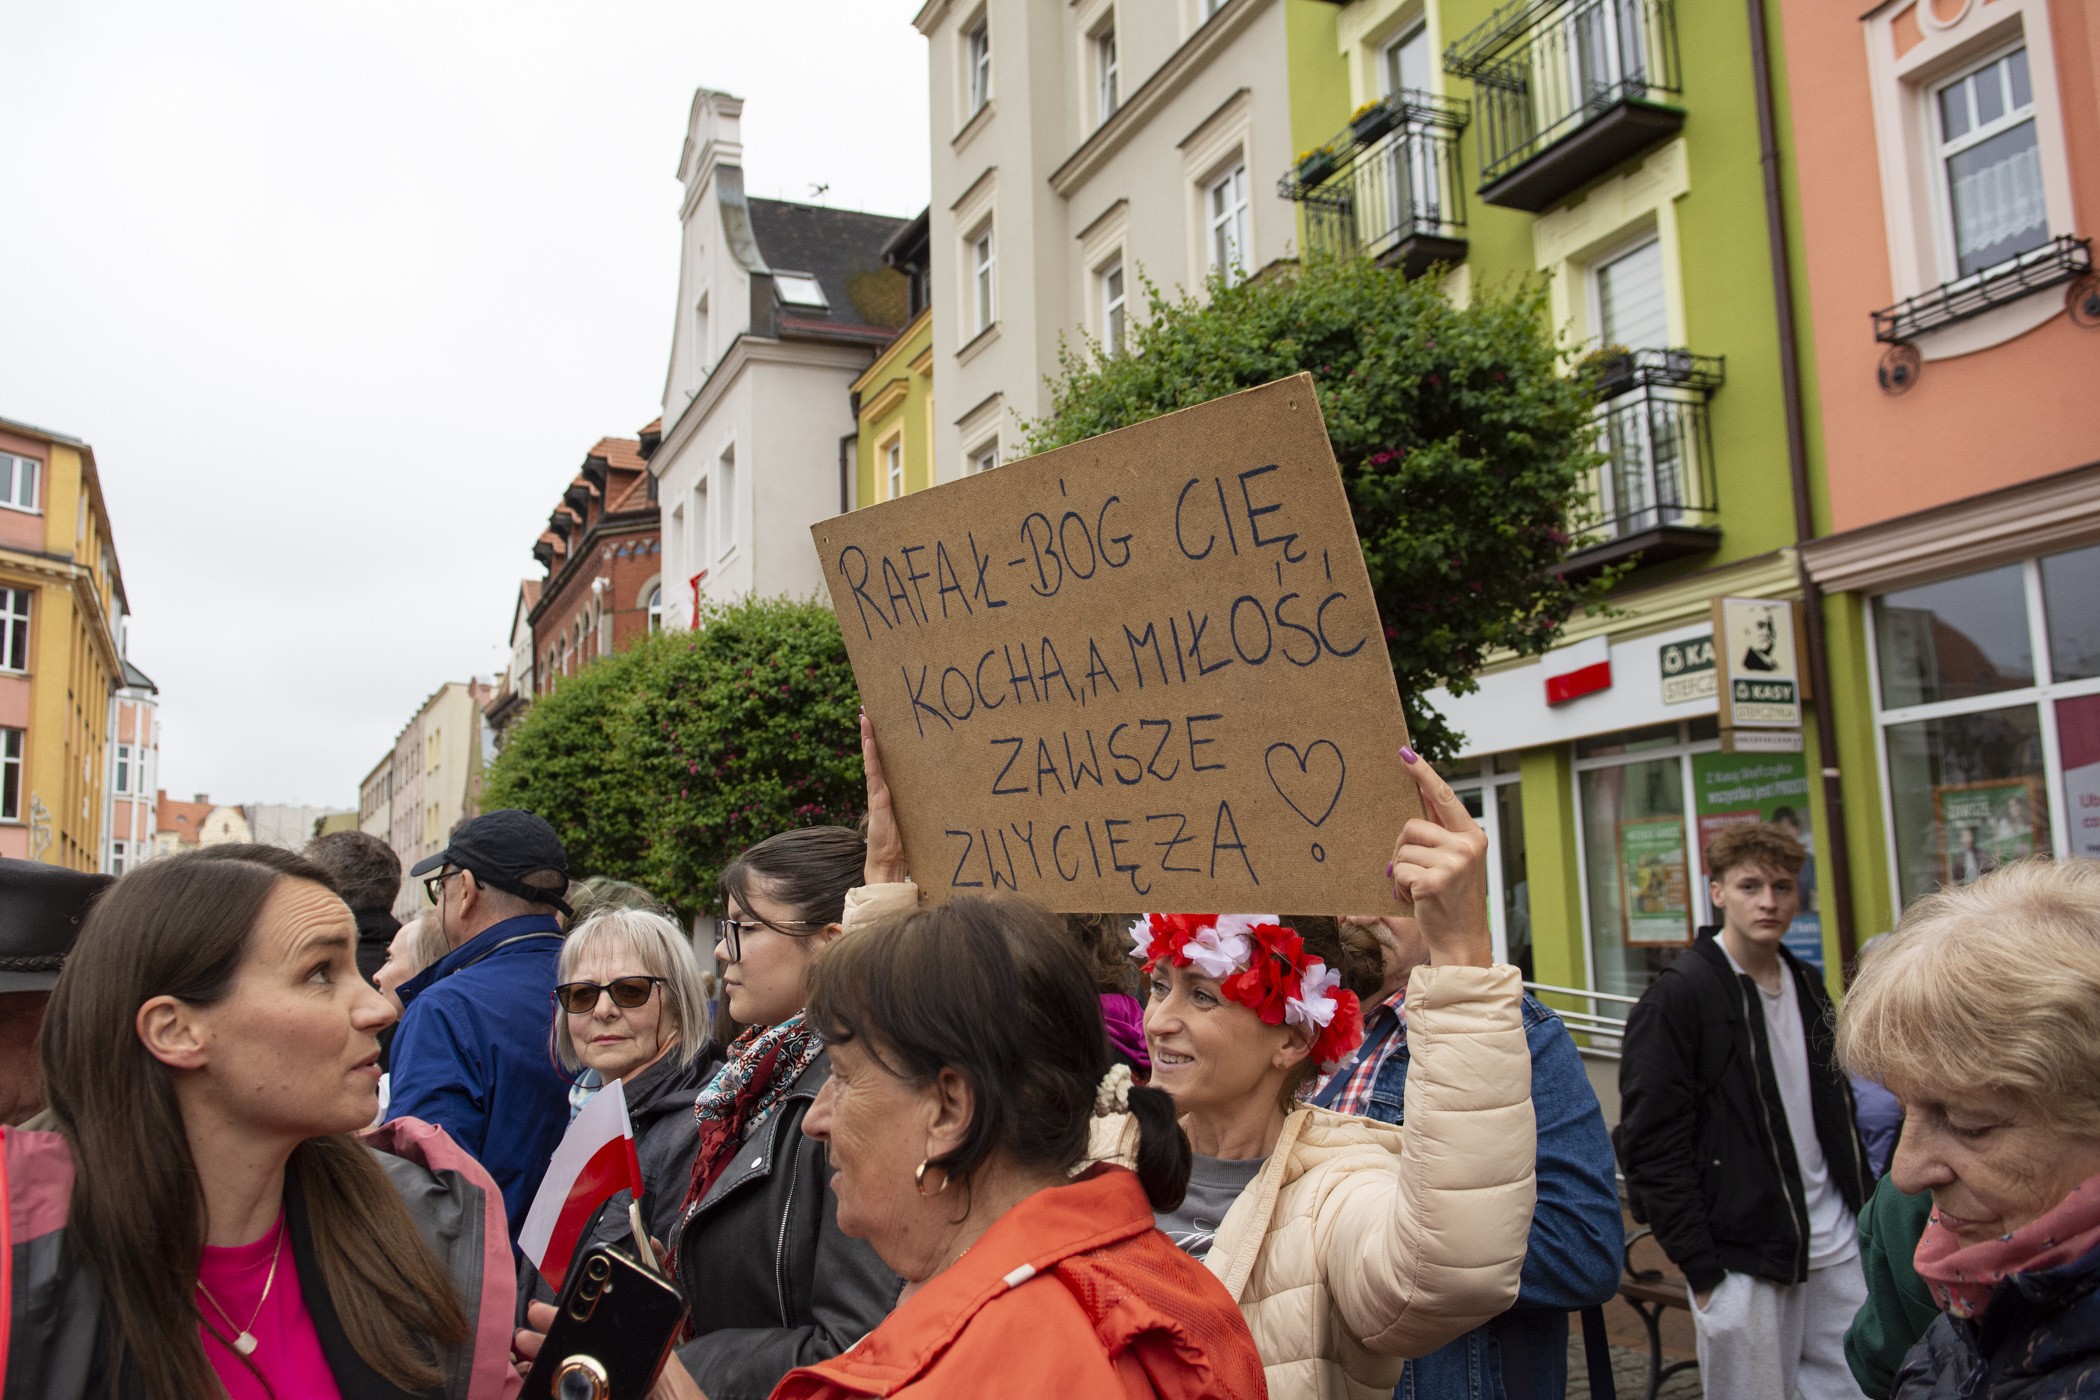 RAFAŁ-BÓG CIĘ
KOCHA, A MIŁOŚĆ
ZAWSZE
ZWYCIĘŻA!
KASY
STEFCZYKA
Z Kasą Stefczyka
wszystko jest PROSTE